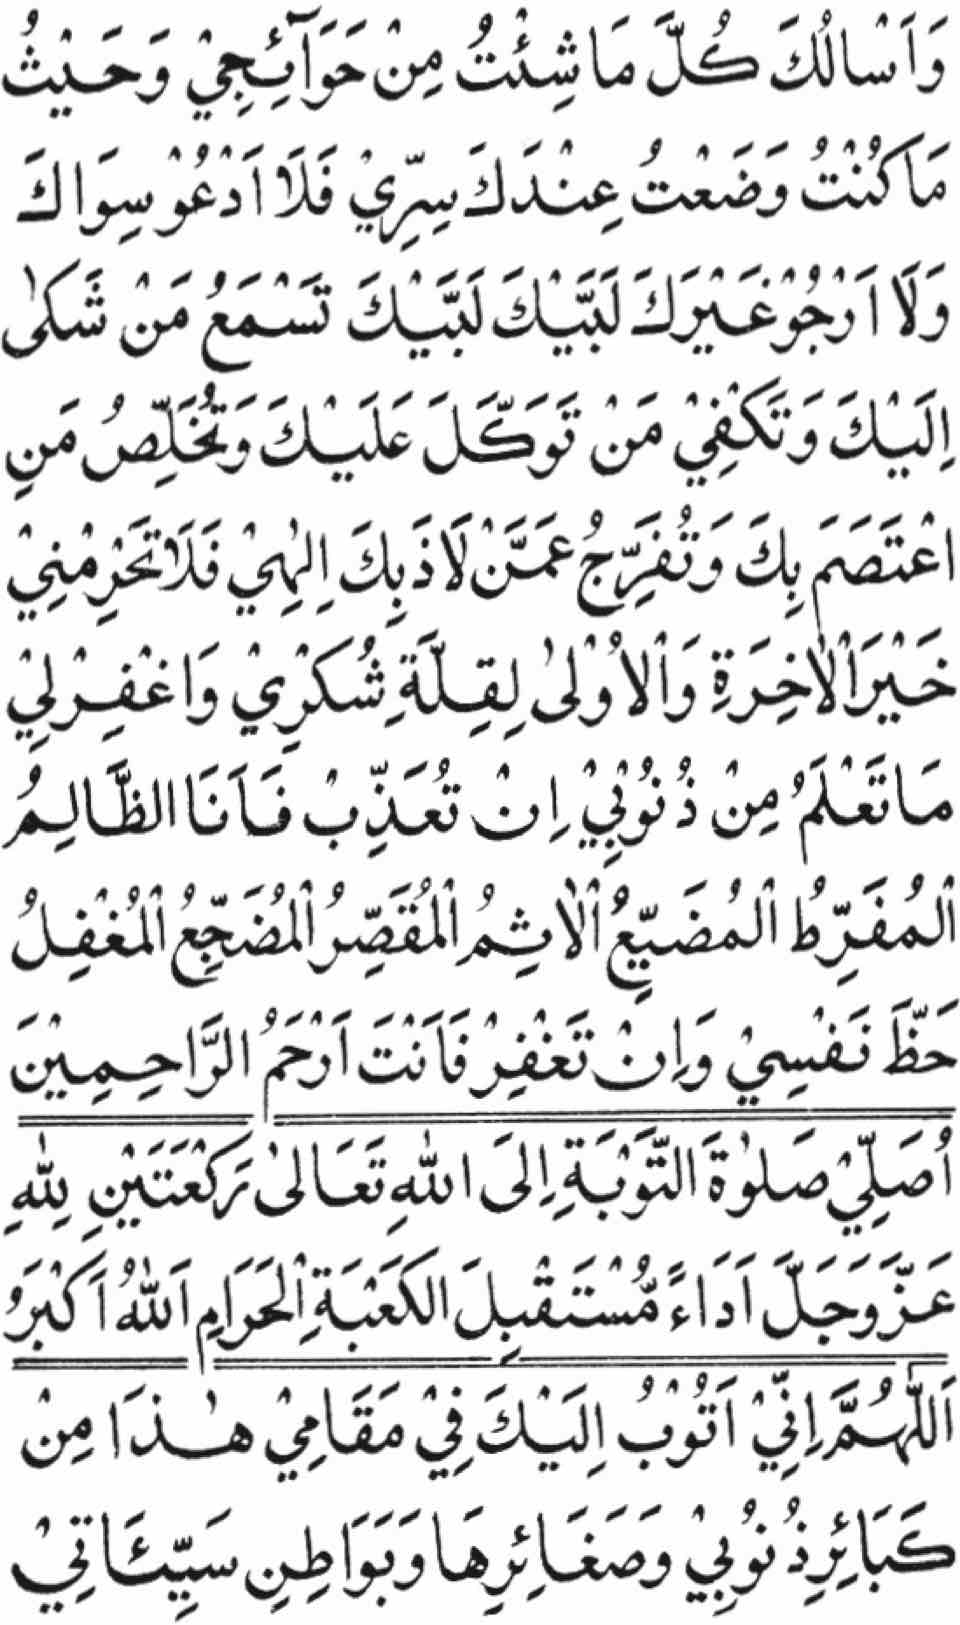 وَاَسْالُكَ كُلَّ مَا شِئْتُ مِنْ حَوَآئِجِيْ وَحَيْثُ
مَا كُنْتُ وَضَعْتُ عِنْدَكَ سِرِّيْ فَلَا اَدْعُوْ سِوَاكَ
وَلَا اَرْجُوْ غَيْرَكَ لَبَّيْكَ لَبَّيْكَ تَسْمَعُ مَنْ شَكىٰ
اِلَيْكَ وَتَكْفِيْ مَنْ تَوَكَّلَ عَلَيْكَ وَتُخَلِّصُ مَنِ
اعْتَصَمَ بِكَ وَتُفَرِّجُ عَمَّنْ لَاذَ بِكَ اِلٰهِيْ فَلَا تَحْرِمْنِيْ
خَيْرَ الْاٰخِرَةِ وَالْاُوْلىٰ لِقِلَّةِ شُكْرِيْ وَاغْفِرْلِيْ
مَا تَعْلَمُ مِنْ ذُنُوْبِيْ اِنْ تُعَذِّبْ فَاَنَا الظَّالِمُ
الْمُفَرِّطُ الْمُضَيِّعُ الْاٰثِمُ الْمُقَصِّرُ الْمُضَجِّعُ الْمُغْفِلُ
حَظَّ نَفْسِيْ وَاِنْ تَغْفِرْ فَاَنْتَ اَرْحَمُ الرَّاحِمِيْنَ
اُصَلِّيْ صَلوٰةَ التَّوْبَةِ اِلَى اللّٰهِ تَعَالىٰ رَكْعَتَيْنِ لِلّٰهِ
عَزَّوَجَلَّ اَدَاءً مُّسْتَقْبِلَ الكَعْبَةِ الْحَرَامِ اَللّٰهُ اَكْبَرُ
اَللّٰهُمَّ اِنِّيْ اَتُوْبُ اِلَيْكَ فِيْ مَقَامِيْ هٰذَا مِنْ
كَبَائِرِ ذُنُوْبِيْ وَصَغَائِرِهَا وَبَوَاطِنِ سَيِّئَاتِيْ